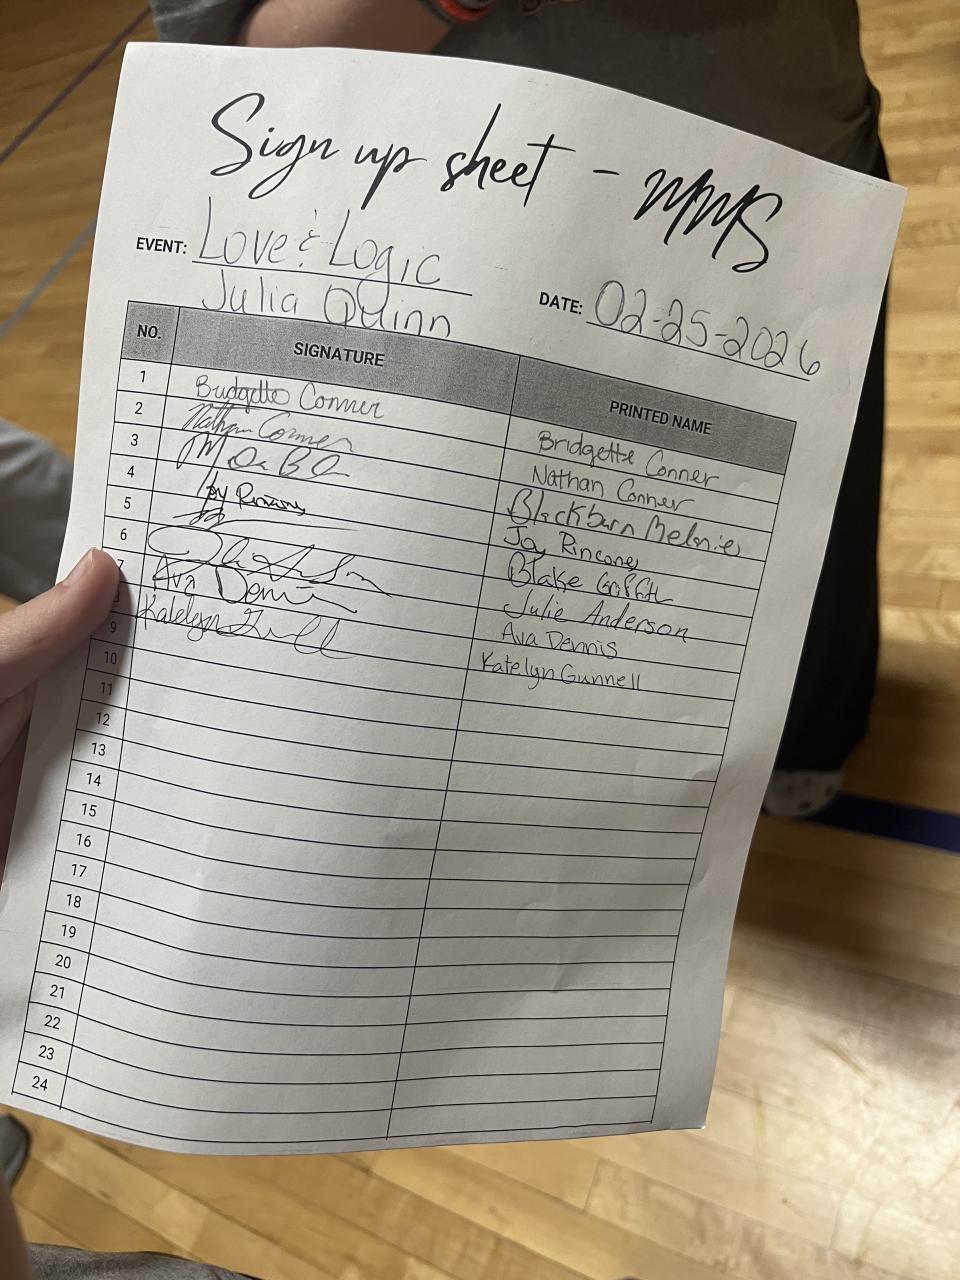 Sign up sheet - MMS
EVENT: Love & Logic
Julia Quinn
DATE: 02-25-2026
NO. SIGNATURE PRINTED NAME
1 Bridgette Conner Bridgette Conner
2 Nathan Conner Nathan Conner
3 Blackburn Melanie
4 Joy Rincones Joy Rincones
5 Blake Griffith
6 Julie Anderson
7 Ava Dennis Ava Dennis
Katelyn Gunnell Katelyn Gunnell
9
10
11
12
13
14
15
16
17
18
19
20
21
22
23
24